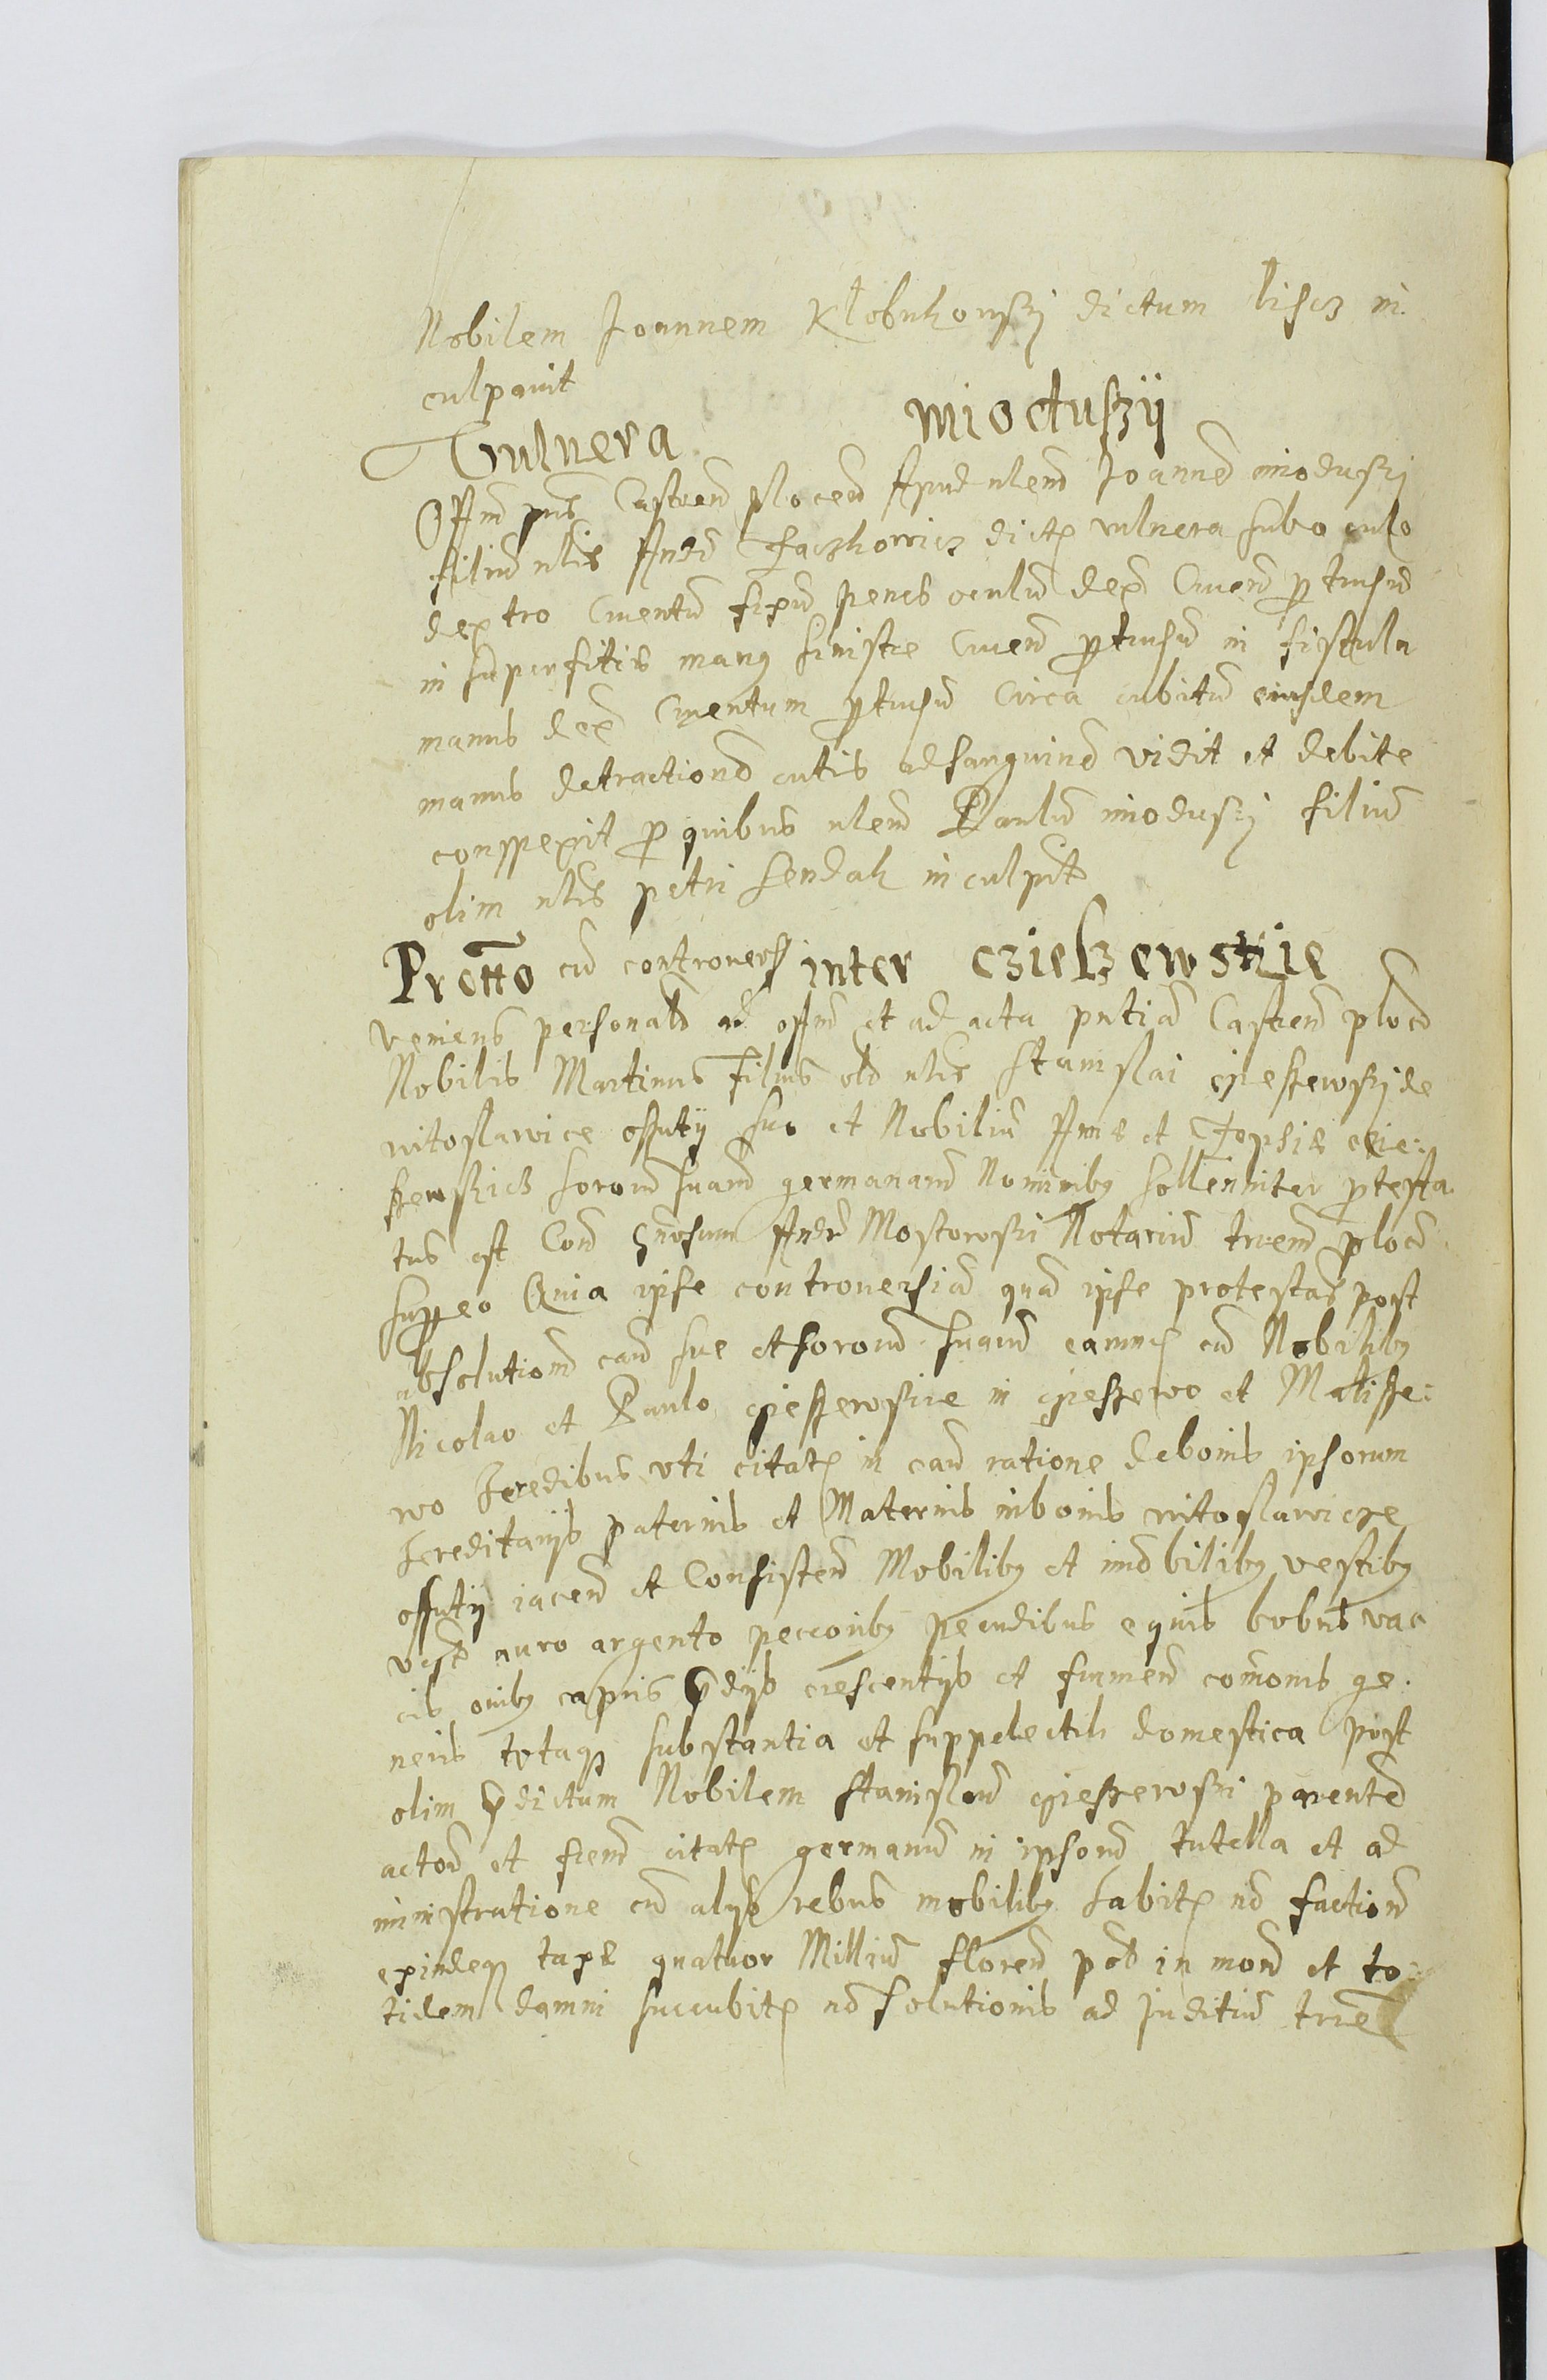 Nobilem Joannem Kłobukowskj dictum lisez in
culpauit
Vulnera mioduskÿ
Offm pns Castren plocen Apud nlem Joanne mioduskj
filiu nlis Andr Faczkowicz dict vulnera sub oculo
dextro Cruentu fixu penes oculu dex Cruen ptusu
in superfitis manq sinistre Cruen ptusu in fistula
manus dex Cruentum ptusu Circa cubitu eiusdem
manus detractione cutis ad sanguine vidit et debite
conspexit p quibus nlem Paulu mioduskj filiu
olim nlis petri Sendak inculpit
Protto cu controuers inter czieszewskie
veniens personalr ad offm et ad acta pntia Castren plocn
Nobilis Martinus filius oli nlis Stanislai czieszewskj de
nitoslawice offutÿ suo et Nobiliu Anne et Zophie czie:
szewskich sororu suaru germanaru Nominibq sollenniter ptesta
tus est Con gnrosum Andr Mostowski Notariu trrem plocn
sup eo Quia ipse controuersia qua ipse protestans post
absolutione cau sue et sororu suaru eamue cu Nobilibq
Nicolao et Paulo czieszewskie in czieszewo et Matisze:
wo heredibus vti citatq in cau ratione de bonis ipsorum
hereditarijs paternis et Maternis in bonis nitoslawicze
offutÿ iacen et Consisten Mobilibq et imobilibq vestibq
veste auro argento peccoribq pecudibus equis bobus vac
cis ouibq capris pdijs crescentijs et frumen coimonis ge.
neris totaqz substantia et suppelectili domestica post
olim pdictum Nobilem Stanislau czieszewski parente
actoru et fren citatq germanu in ipsoru tutella et ad
ministratione cu alijs rebus mobilibq habitq no faction
exindeqz taxe quatuor Milliu floren pct in mon et to:
tidem damni succubitq no solutionis ad Juditiu trre